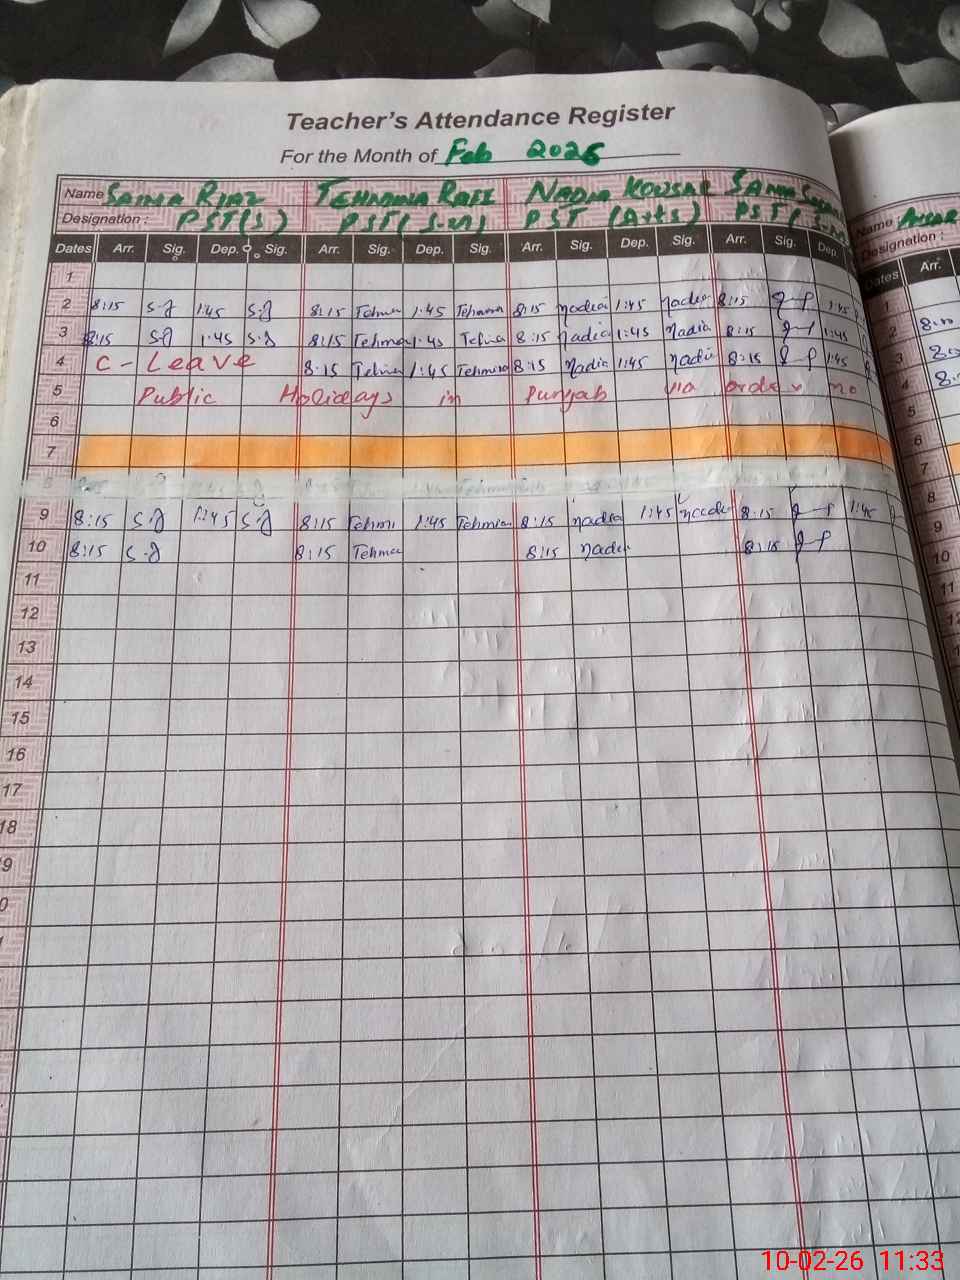 Teacher's Attendance Register
For the Month of Feb 2026
Name SAIMA RIAZ TEHMINA RAFI NADIA KOUSAR SAMIA
Designation : PST(S) PST( S.M) PST (Arts) PST(
Dates Arr. Sig. Dep. Sig. Arr. Sig. Dep. Sig. Arr. Sig. Dep. Sig. Arr. Sig. Dep.
1
2 8:15 S.J 1:45 S.J 8:15 Tehmi 1:45 Tehmina 8:15 Nadia 1:45 Nadia 8:15 1:45
3 8:15 SJ 1:45 S.J 8:15 Tehmi 1:45 8:15 Nadia 1:45 Nadia 8:15 1:45
4 C - Leave 8:15 1:45 Tehmina 8:15 Nadia 1:45 Nadia 8:15 1:45
5 Public Holidays in Punjab via order no
6
7
8
9 8:15 S.J 1:45 S.J 8:15 Tehmi 1:45 Tehmina 8:15 Nadia 1:45 Nadia 8:15 1:45
10 8:15 S.J 8:15 Tehmi 8:15 Nadia 8:15
11
12
13
14
15
16
17
18
9
0
Name
Designation :
Dates Arr.
1
2 8:10
3
4
5
6
7
8
9
10
11
12
10-02-26 11:33